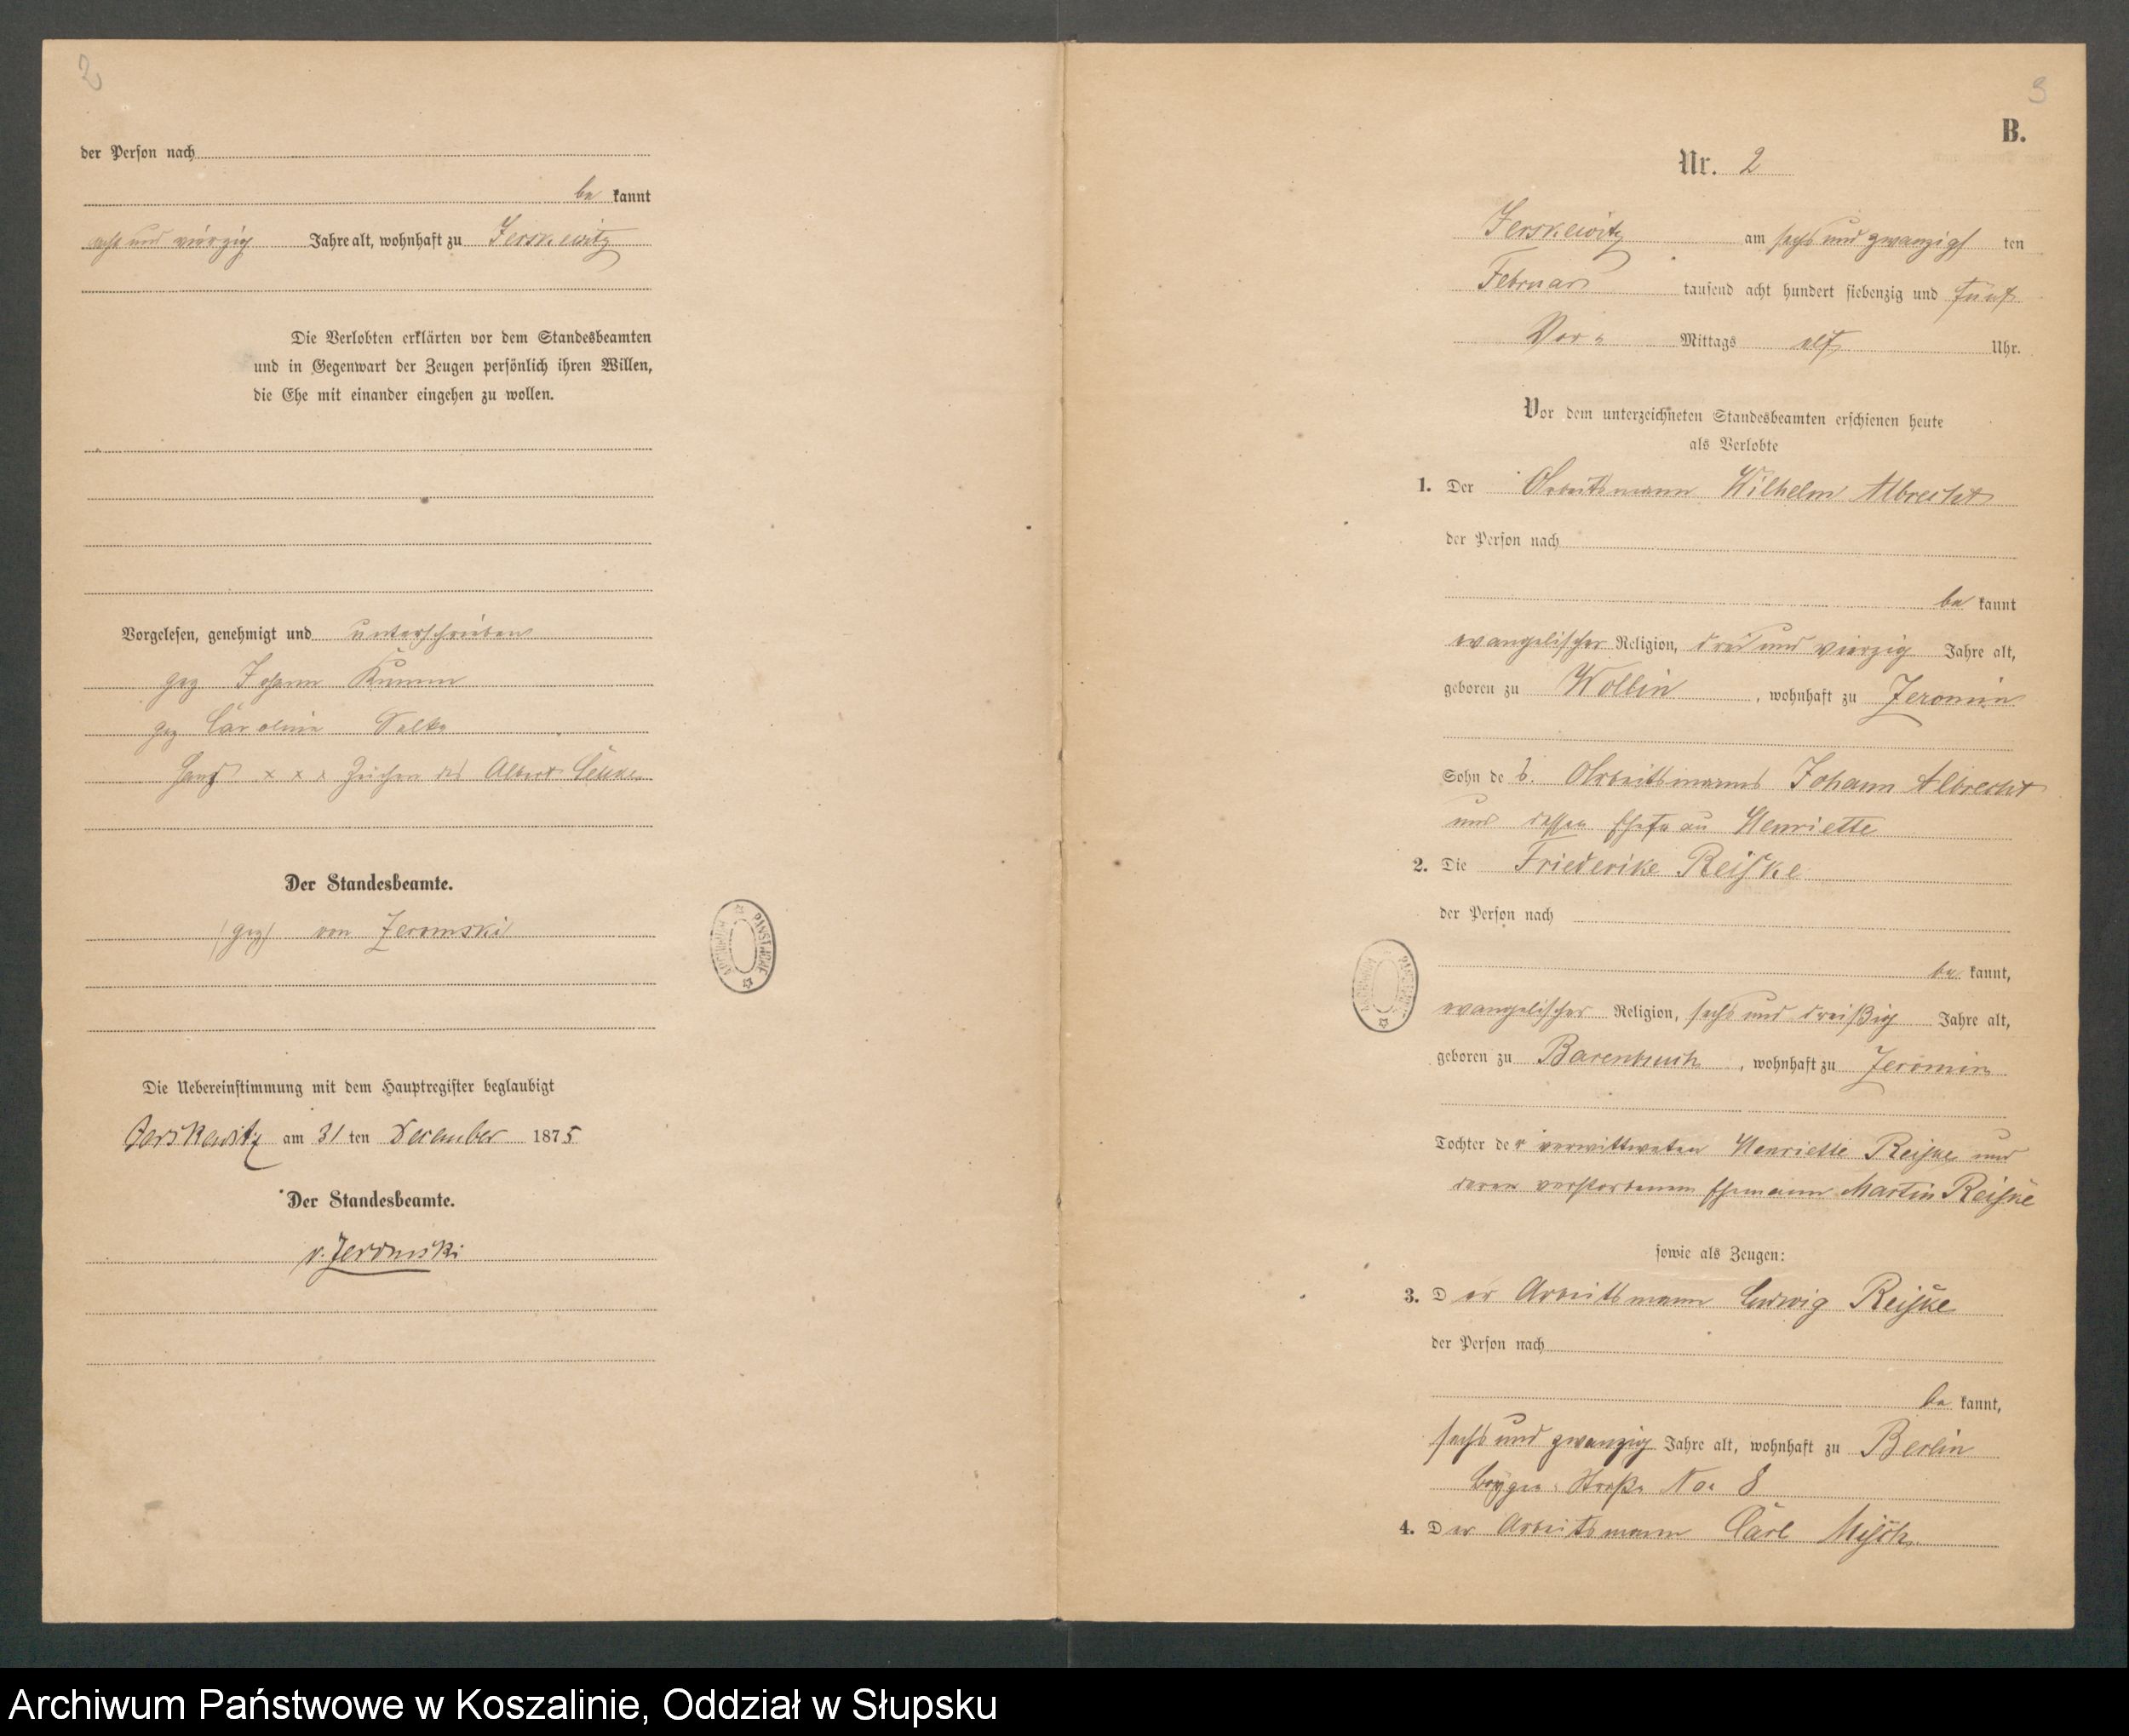 2
der Person nach
be kannt
acht und vierzig Jahre alt, wohnhaft zu Jerskewitz
Die Verlobten erklärten vor dem Standesbeamten
und in Gegenwart der Zeugen persönlich ihren Willen,
die Ehe mit einander eingehen zu wollen.
Vorgelesen, genehmigt und unterschrieben
gez Johann Kumm
gez Caroline
Handz x x x Zeichen des Albert
Der Standesbeamte.
(gez) von Jeromski
ARCHIWUM PAŃSTWOWE
Die Uebereinstimmung mit dem Hauptregister beglaubigt
Jerskewitz am 31 ten December 1875
Der Standesbeamte.
v. Jeromski
3
B.
Nr. 2
Jerskewitz am sechs und zwanzigs ten
Februar tausend acht hundert siebenzig und fünf
Vor- Mittags elf Uhr.
Vor dem unterzeichneten Standesbeamten erschienen heute
als Verlobte
1. Der Arbeitsmann Wilhelm Albrecht
der Person nach
be kannt
evangelischer Religion, drei und vierzig Jahre alt,
geboren zu Wollin, wohnhaft zu Jeromin
Sohn des Arbeitsmanns Johann Albrecht
und dessen Ehefrau Henriette
2. Die Friederike Reiske
der Person nach
be kannt,
evangelischer Religion, sechs und dreißig Jahre alt,
geboren zu Barenbusch, wohnhaft zu Jeromin
Tochter der verwittweten Henriette Reiske und
deren verstorbenem Ehemann Martin Reiske
sowie als Zeugen:
3. Der Arbeitsmann Ludwig Reiske
der Person nach
be kannt,
sechs und zwanzig Jahre alt, wohnhaft zu Berlin
Straße No. 8
4. Der Arbeitsmann Carl
ARCHIWUM PAŃSTWOWE
Archiwum Państwowe w Koszalinie, Oddział w Słupsku